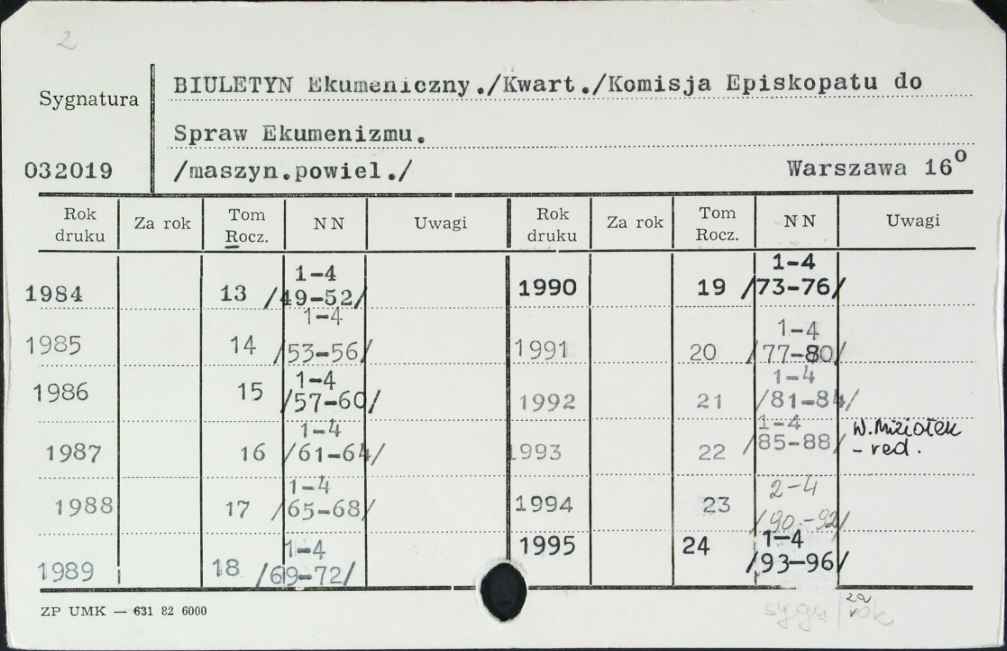 2
BIULETYN Ekumeniczny./Kwart./Komisja Episkopatu do
Sygnatura
Spraw Ekumenizmu.
032019 /maszyn.powiel./ Warszawa 16°
Rok druku Za rok Tom Rocz. NN Uwagi Rok druku Za rok Tom Rocz. NN Uwagi
1984 13 1-4 /49-52/ 1990 19 1-4 /73-76/
1985 14 1-4 /53-56/ 1991 20 1-4 /77-80/
1986 15 1-4 /57-60/ 1992 21 1-4 /81-84/
1987 16 1-4 /61-64/ 1993 22 1-4 /85-88/ W. Miziołek - red.
1988 17 1-4 /65-68/ 1994 23 2-4 /90-92/
1989 18 1-4 /69-72/ 1995 24 1-4 /93-96/
ZP UMK — 631 82 6000
sygn/za rok